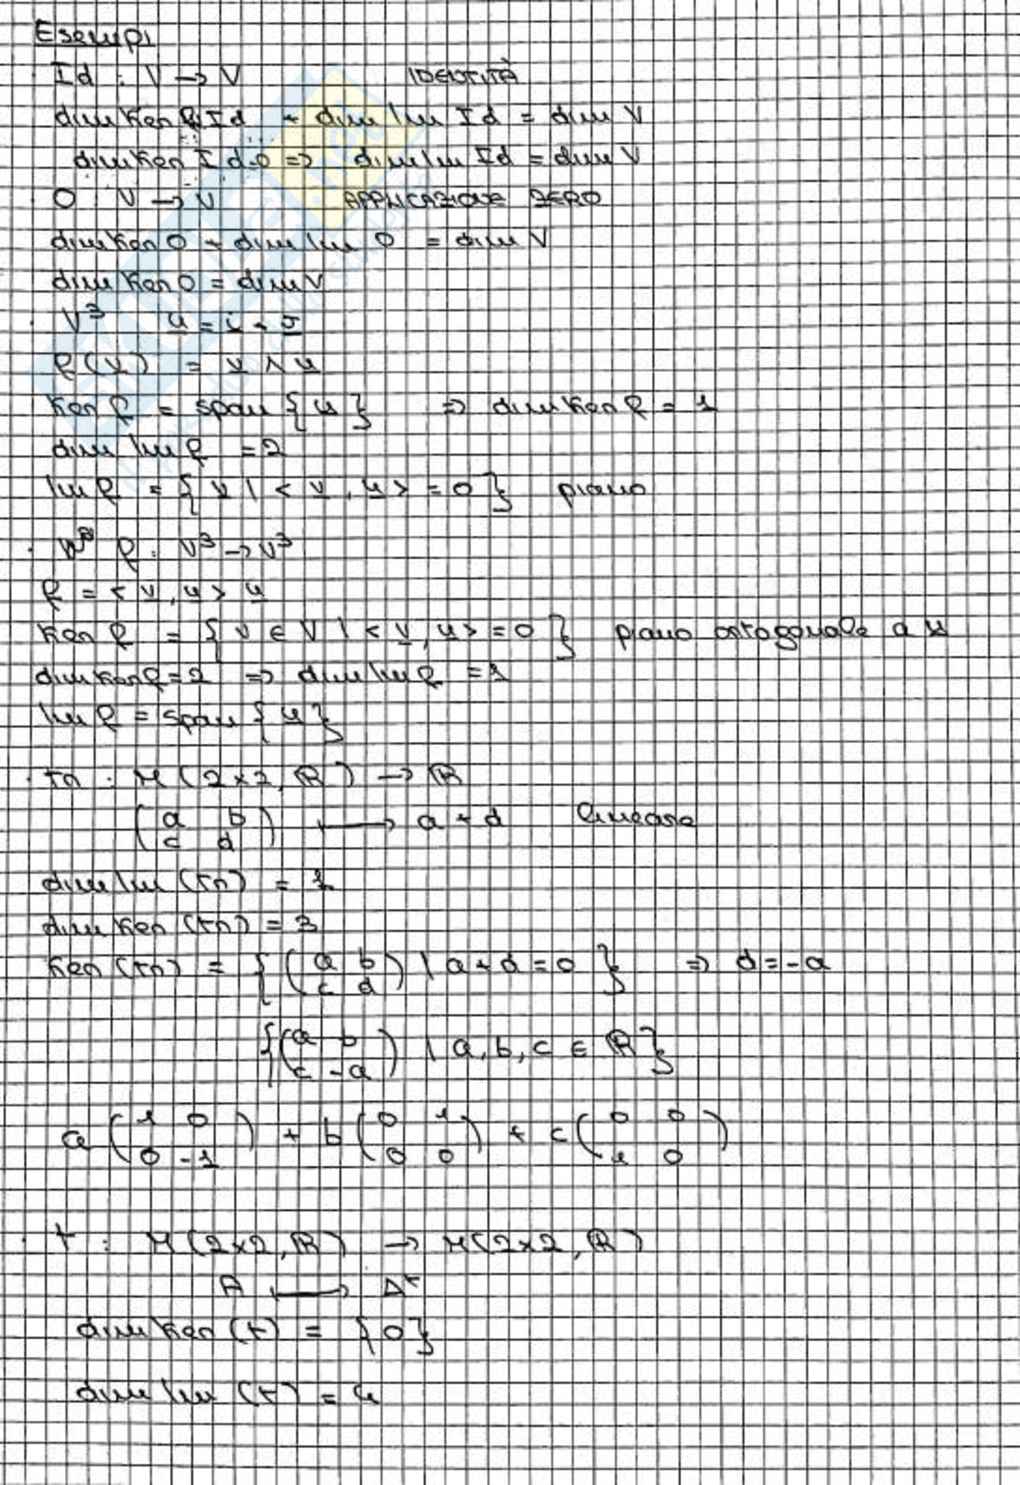 Esempi
Id : V → V IDENTITÀ
dim Ker f Id + dim Im Id = dim V
dim Ker Id = 0 => dim Im Id = dim V
O : V → V APPLICAZIONE ZERO
dim Ker O + dim Im O = dim V
dim Ker O = dim V
V³ u = i + j
f(v) = v ∧ u
Ker f = span {u} => dim Ker f = 1
dim Im f = 2
Im f = {v | <v, u> = 0} piano
f : V³ → V³
f = <v, u> u
Ker f = {v ∈ V | <v, u> = 0} piano ortogonale a u
dim Ker f = 2 => dim Im f = 1
Im f = span {u}
tr : M(2×2, ℝ) → ℝ
(a b
c d) ⟼ a + d lineare
dim Im (tr) = 1
dim Ker (tr) = 3
Ker (tr) = {(a b
c d) | a + d = 0} => d = -a
{(a b
c -a) | a, b, c ∈ ℝ}
a (1 0
0 -1) + b (0 1
0 0) + c (0 0
1 0)
t : M(2×2, ℝ) → M(2×2, ℝ)
A ⟼ Aᵗ
dim Ker (t) = {0}
dim Im (t) = 4